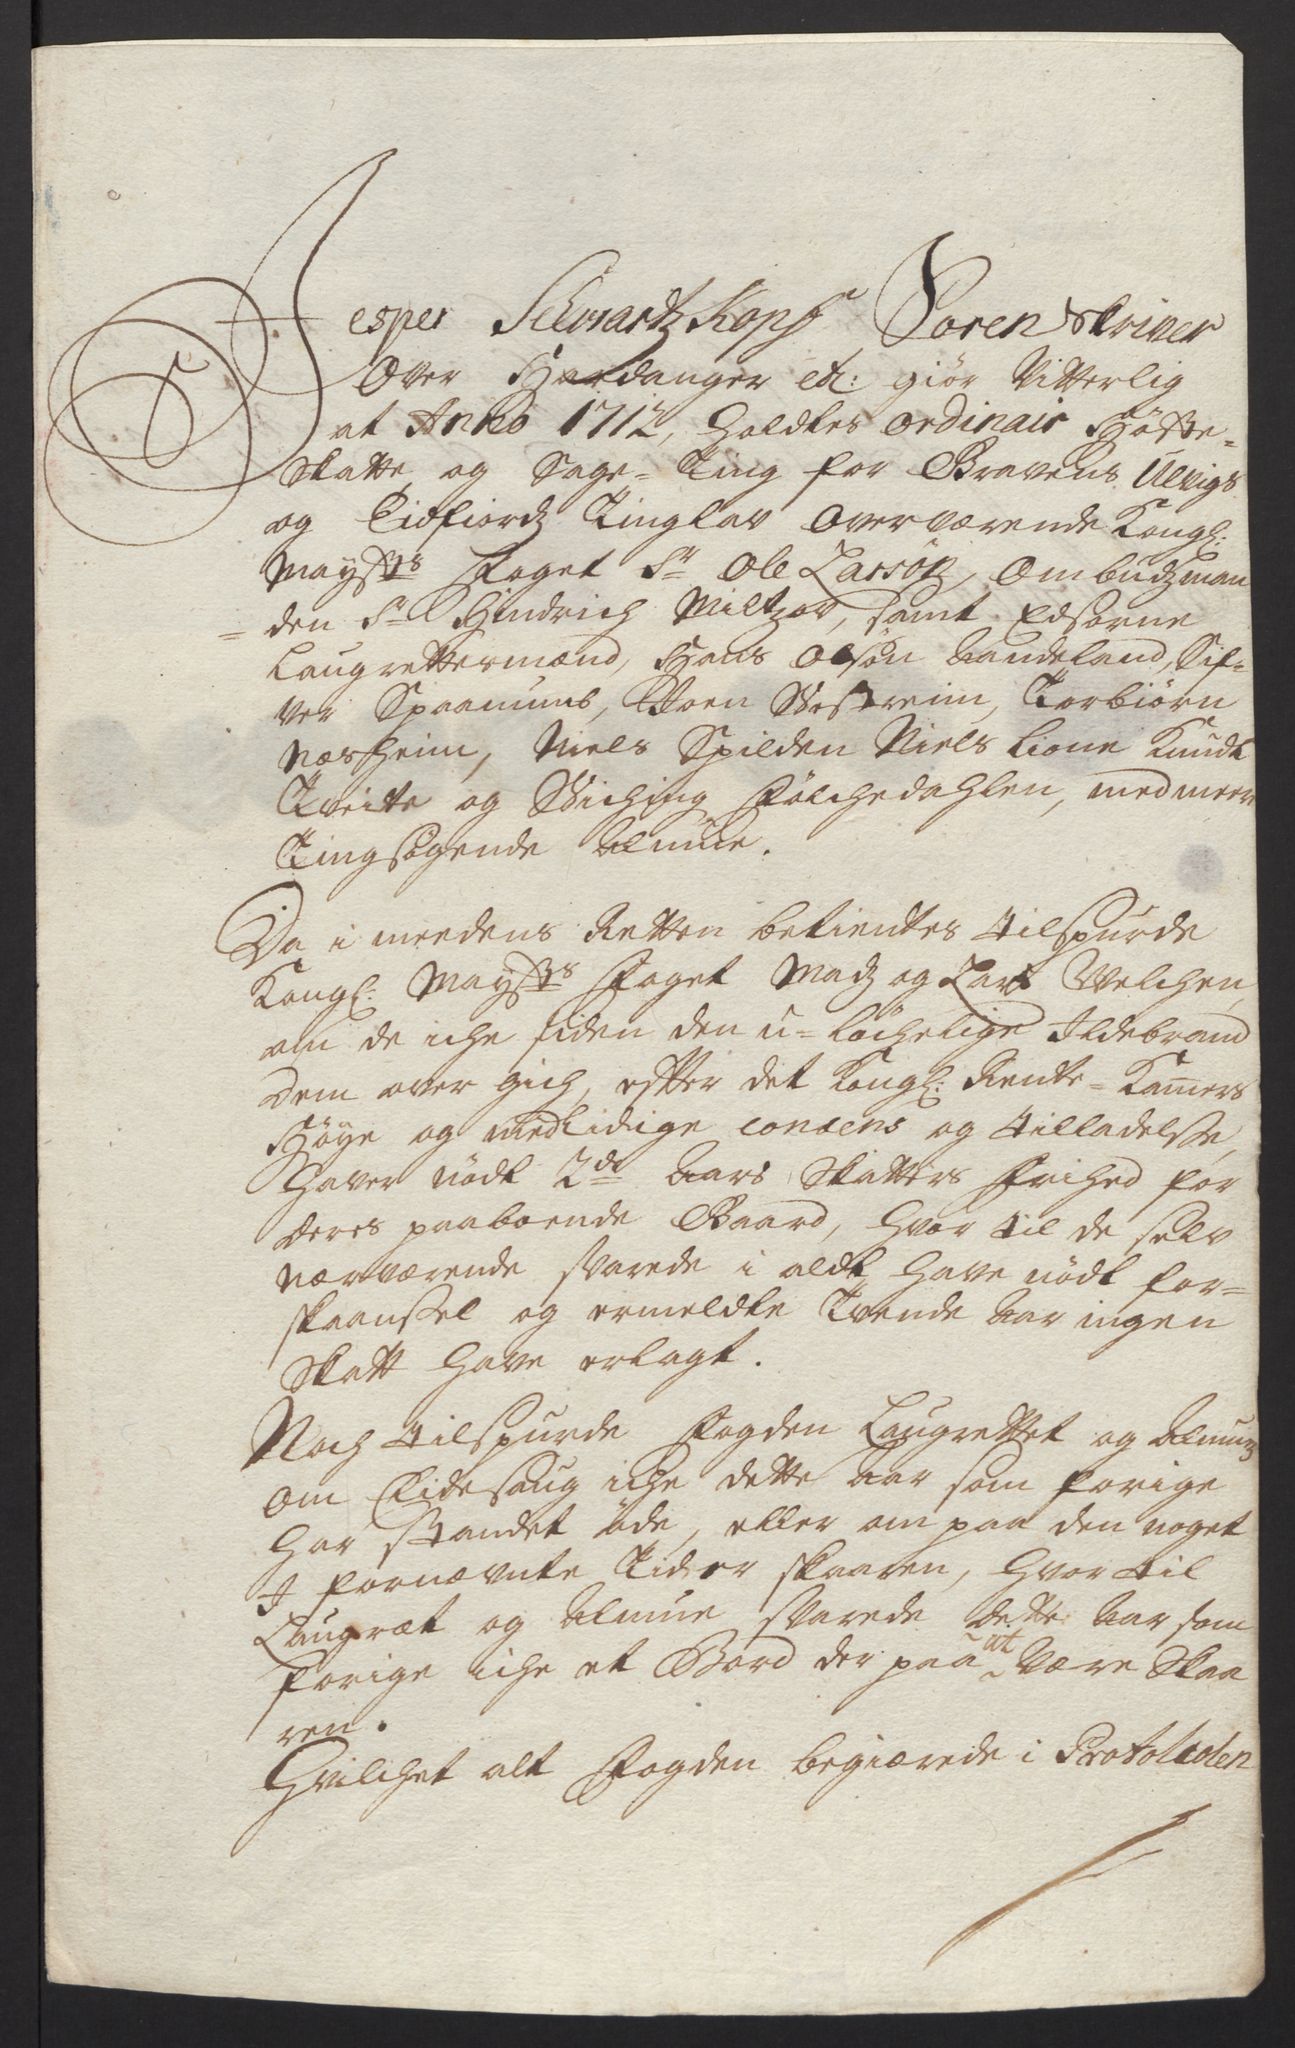 Jesper Schvartz Kopf Soren Skriver
Over Hardanger etc: giör Vitterlig
at Anno 1712, Holdtes ordinair Höste-
Skatte og Sage-Ting for Gravens Ulvigs
og Eidfiordz Tinglav Overværende Kongl:
Mayts Foget Sr Ole Larsön, Ombudzman
= den Sr Hindrich Miltzov, samt Edsorne
Laugrettesmænd, Hans Olsön Haudeland, Sif-
ver Spaanumb, Joen Westreim, Torbiörn
Næsheim, Niels Spilden Niels Lione Knudt
Tveite og Wiching Fölchedahlen, med meere
Tingsögende Almue.
Da i meedens Retten betientes tilspurde
Kongl: Mayts Foget Madz og Lars Velchen
om de iche siden den u-löchelige Ildebrand
dem over gich, efter det Kongl: Rente-Kamers
Höye og medlidige consens og tilladelse,
haver nödt 2de Aars Skatters Frihed for
deres paaboende Gaard, hvor til de selv
nærværende svarede i aldt have nödt for-
skaansel og ermeldte Tvende Aar ingen
Skatt have erlagt.
Noch tilspurde Fogden Laugrettet og Almuen
om Eidesaug iche dette Aar som forige
har standet öde, eller om paa den noget
I fornævnte Tid er skaaren, hvor til
Laugræt og Almue svarede dette Aar som
forige iche et Bord der paa at være Skaa
ren.
Hvilchet alt Fogden begiærede i Protocolen